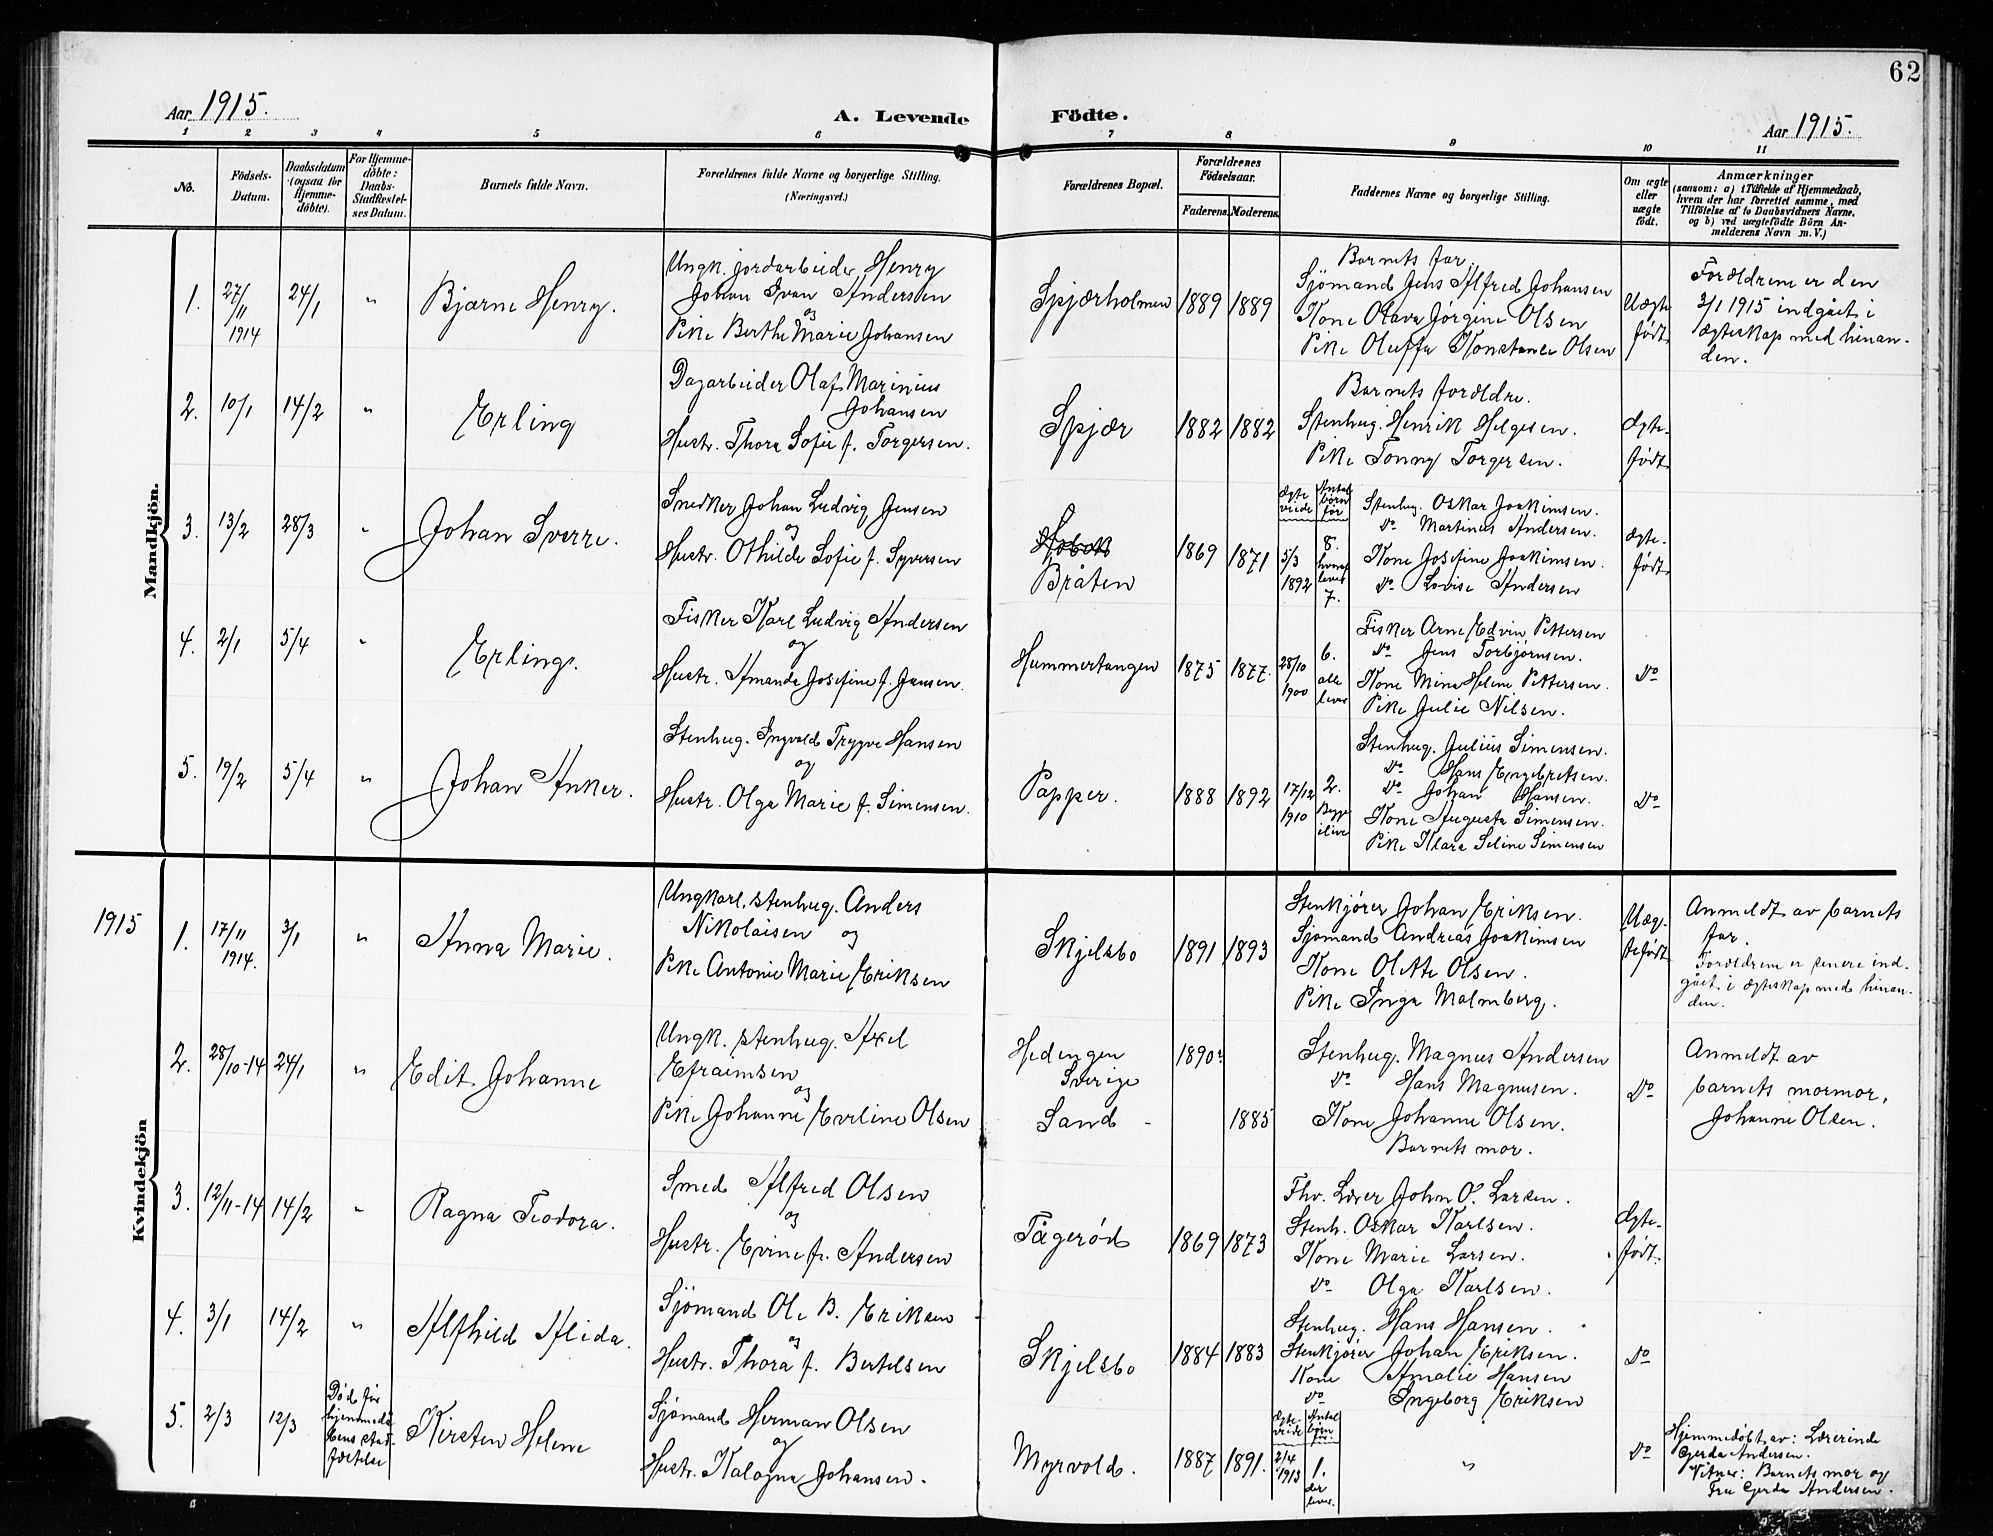 62
Aar 1915.
A. Levende Födte.
Aar 1915.
1 2 3 4 5 6 7 8 9 10 11
No.
Födsels-Datum.
Daabsdatum (ogsaa for Hjemme-döbte).
For Hjemme-döbte: Daabs-Stadfæstelses Datum.
Barnets fulde Navn.
Forældrenes fulde Navne og borgerlige Stilling.
(Næringsvei.)
Forældrenes Bopæl.
Forældrenes Födselsaar.
Faderens. Moderens.
Faddernes Navne og borgerlige Stilling.
Om ægte eller uægte födt.
Anmærkninger
(saasom: a) i Tilfælde af Hjemmedaab,
hvem der har forrettet samme, med
Tilföielse af to Daabsvidners Navne.
og b) ved uægtefödte Börn An-
melderens Navn m. V.)
Mandkjön.
1. 27/11 1914 24/1 " Bjarne Henry.
Ungk. jordarbeider Henry
Johan Ivan Andersen
og
Pike Berthe Marie Johansen
Spjærholmen 1889 1889
Barnets far.
Sjömand Jens Alfred Johansen
Kone Olava Jørgine Olsen
Pike Oluffa Konstance Olsen
Uægte født
Forældrene er den
3/1 1915 indgået i
ægteskap med hinan-
den.
2. 10/1 14/2 " Erling
Dagarbeider Olaf Marinius
Johansen
Hustr. Thora Sofie f. Torgersen.
Spjær 1882 1882
Barnets forældre.
Stenhug. Henrik Helgesen.
Pike Tonny Torgersen.
Ægte-født
3. 13/2 28/3 " Johan Sverre.
Snedker Johan Ludvig Jensen
og
Hustr. Othilde Sofie f. Syversen
Bråten 1869 1871
Ægte viede 5/3 1892
Antal børn før 8. hvoraf lever 7.
Stenhug. Oskar Joakimsen.
Do Martinus Andersen.
Kone Josefine Joakimsen.
Do Lovise Andersen
Ægte-født
4. 2/1 5/4 " Erling.
Fisker Karl Ludvig Andersen
og
Hustr. Amanda Josefine f. Jansen.
Hummertangen 1875 1877.
28/10 1900 6. alle lever
Fisker Arne Edvin Pettersen
Do Jens Torbjørnsen.
Kone Mina Helene Pettersen.
Pike Julie Nilsen.
Do
5. 19/2 5/4 " Johan Anker.
Stenhug. Ingvald Trygve Hansen
og
Hustr. Olga Marie f. Simensen.
Papper. 1888 1892
17/12 1910 2. Begge ilive
Stenhug. Julius Simensen.
Do Hans Engebretsen.
Do Johan Hansen.
Kone Augusta Simensen.
Pike Klara Seline Simensen
Do
Kvindekjön
1915
1. 17/11 1914. 3/1 " Anna Marie.
Ungkarl, stenhug. Anders
Nikolaisen og
Pike Antonie Marie Eriksen
Skjelsbo 1891 1893
Stenkjører Johan Eriksen.
Sjømand Andreas Joakimsen
Kone Olette Olsen.
Pike Inga Malmberg.
Uæg-tefødt
Anmeldt av barnets
far.
Forældrene er senere ind-
gået i ægteskap med hinan-
den.
2. 28/10-14 24/1 " Edit Johanne
Ungk. stenhug. Axel
Efraimsen
og
Pike Johanne Everline Olsen
Hedengen
Sverige 1890
Sand - 1885
Stenhug. Magnus Andersen
Do Hans Magnusen.
Kone Johanne Olsen.
Barnets mor.
Do
Anmeldt av
barnets mormor,
Johanne Olsen.
3. 12/11-14 14/2 " Ragna Teodora.
Smed Alfred Olsen
og
Hustr. Evine f. Andersen
Tågerød 1869 1873
Fhv. Lærer John O. Larsen.
Stenh. Oskar Karlsen.
Kone Marie Larsen.
Do Olga Karlsen.
Ægte-født.
4. 3/1 14/2 " Alfhild Alida.
Sjömand Ole B. Eriksen
og
Hustr. Thora f. Bertelsen
Skjelsbo 1884 1883
Stenhug. Hans Hansen.
Stenkjører Johan Eriksen.
Kone Amalie Hansen
Do Ingeborg Eriksen
Do
5. 2/3 12/3
Død før
hjemmedå-
bens stad-
fæstelse
Kirsten Helene
Sjömand Herman Olsen
og
Hustr. Kalagna Johansen.
Myrvold. 1887 1891.
Ægte-viede 2/4 1913
Antal børn før 1. der lever.
"
Do
Hjemmedøbt av: Lærerinde
Gerda Andersen.
Vitner: Barnets mor og
Fru Gerda Andersen.